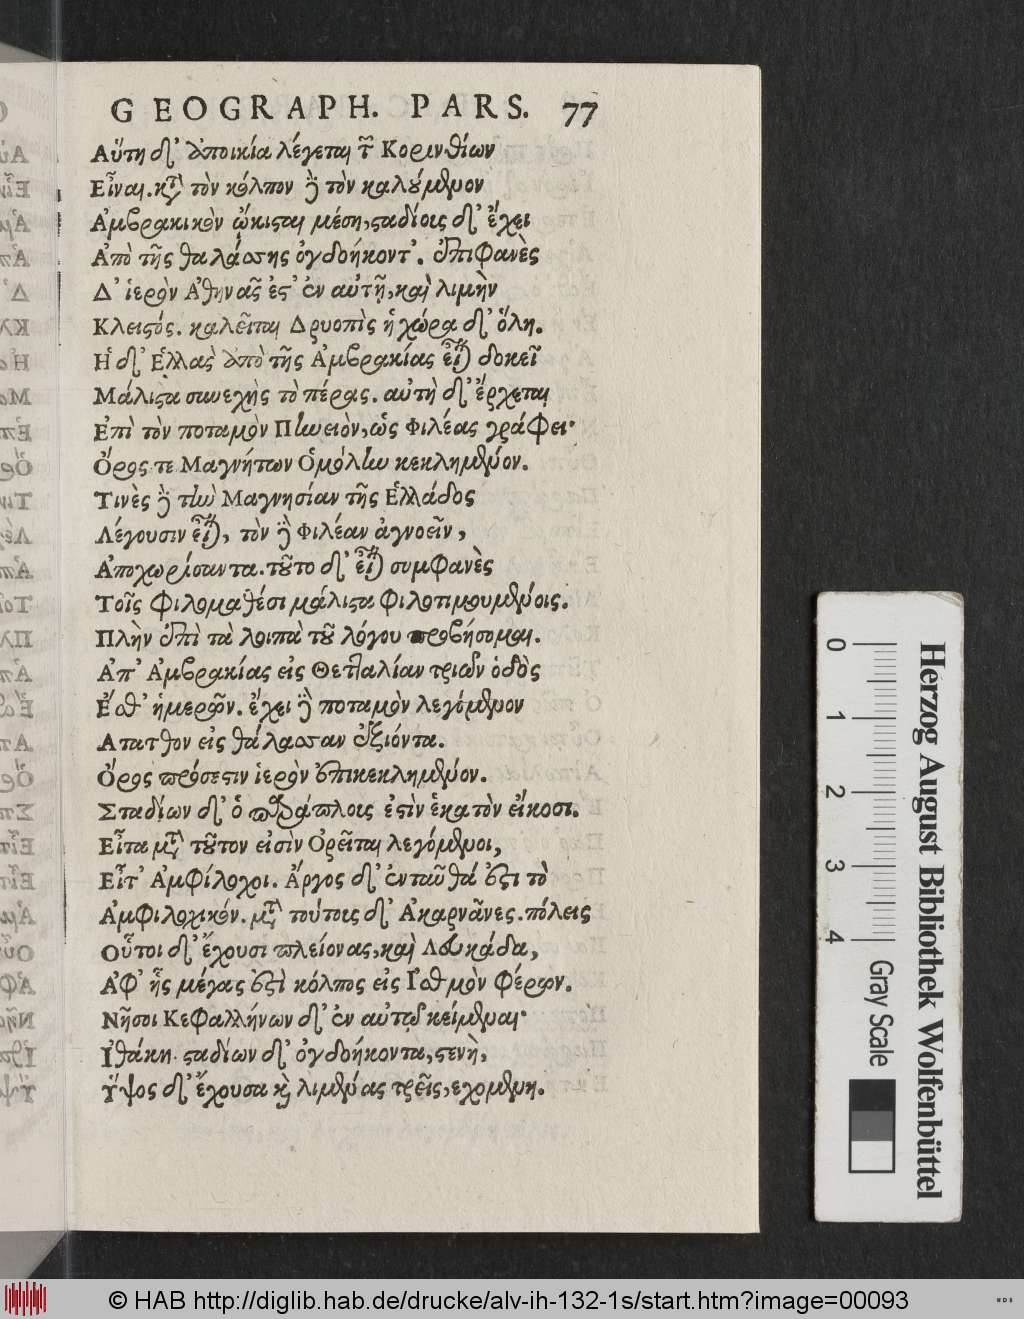 GEOGRAPH. PARS. 77
Αὕτη δ' ἀποικία λέγεται τῶν Κορινθίων
Εἶναι. κατὰ τὸν κόλπον δὲ τὸν καλούμενον
Ἀμβρακικὸν ᾤκισται μέση, σταδίοις δ' ἔχει
Ἀπὸ τῆς θαλάσσης ὀγδοήκοντ'. ἐπιφανὲς
Δ' ἱερὸν Ἀθηνᾶς ἐστ' ἐν αὐτῇ, καὶ λιμὴν
Κλειστός. καλεῖται Δρυοπὶς ἡ χώρα δ' ὅλη.
Ἡ δ' Ἑλλὰς ἀπὸ τῆς Ἀμβρακίας εἶναι δοκεῖ
Μάλιστα συνεχὴς τὸ πέρας. αὐτὴ δ' ἔρχεται
Ἐπὶ τὸν ποταμὸν Πηνειὸν, ὡς Φιλέας γράφει·
Ὄρος τε Μαγνήτων Ὁμόλην κεκλημένον.
Τινὲς δὲ τὴν Μαγνησίαν τῆς Ἑλλάδος
Λέγουσιν εἶναι, τὸν δὲ Φιλέαν ἀγνοεῖν,
Ἀποχωρίσαντα. τοῦτο δ' εἶναι συμφανὲς
Τοῖς φιλομαθέσι μάλιστα φιλοτιμουμένοις.
Πλὴν ἐπὶ τὰ λοιπὰ τοῦ λόγου προβήσομαι.
Ἀπ' Ἀμβρακίας εἰς Θετταλίαν τριῶν ὁδὸς
Ἔσθ' ἡμερῶν. ἔχει δὲ ποταμὸν λεγόμενον
Ατατθον εἰς θάλασσαν ἐξιόντα.
Ὄρος πρόσεστιν ἱερὸν ἐπικεκλημένον.
Σταδίων δ' ὁ παράπλοις ἐστὶν ἑκατὸν εἴκοσι.
Εἶτα μετὰ τοῦτον εἰσὶν Ὀρεῖται λεγόμενοι,
Εἶτ' Ἀμφίλοχοι. Ἄργος δ' ἐνταῦθά ἐστι τὸ
Ἀμφιλοχικόν. μετὰ τούτοις δ' Ἀκαρνᾶνες. πόλεις
Οὗτοι δ' ἔχουσι πλείονας, καὶ Λευκάδα,
Ἀφ' ἧς μέγας ἐστὶ κόλπος εἰς Ἰσθμὸν φέρων.
Νῆσοι Κεφαλλήνων δ' ἐν αὐτῷ κείμεναι·
Ἰθάκη. σταδίων δ' ὀγδοήκοντα, στενὴ,
Ὕψος δ' ἔχουσα καὶ λιμένας τρεῖς, εχομένη.
0 1 2 3 4
Gray Scale
Herzog August Bibliothek Wolfenbüttel
© HAB http://diglib.hab.de/drucke/alv-ih-132-1s/start.htm?image=00093